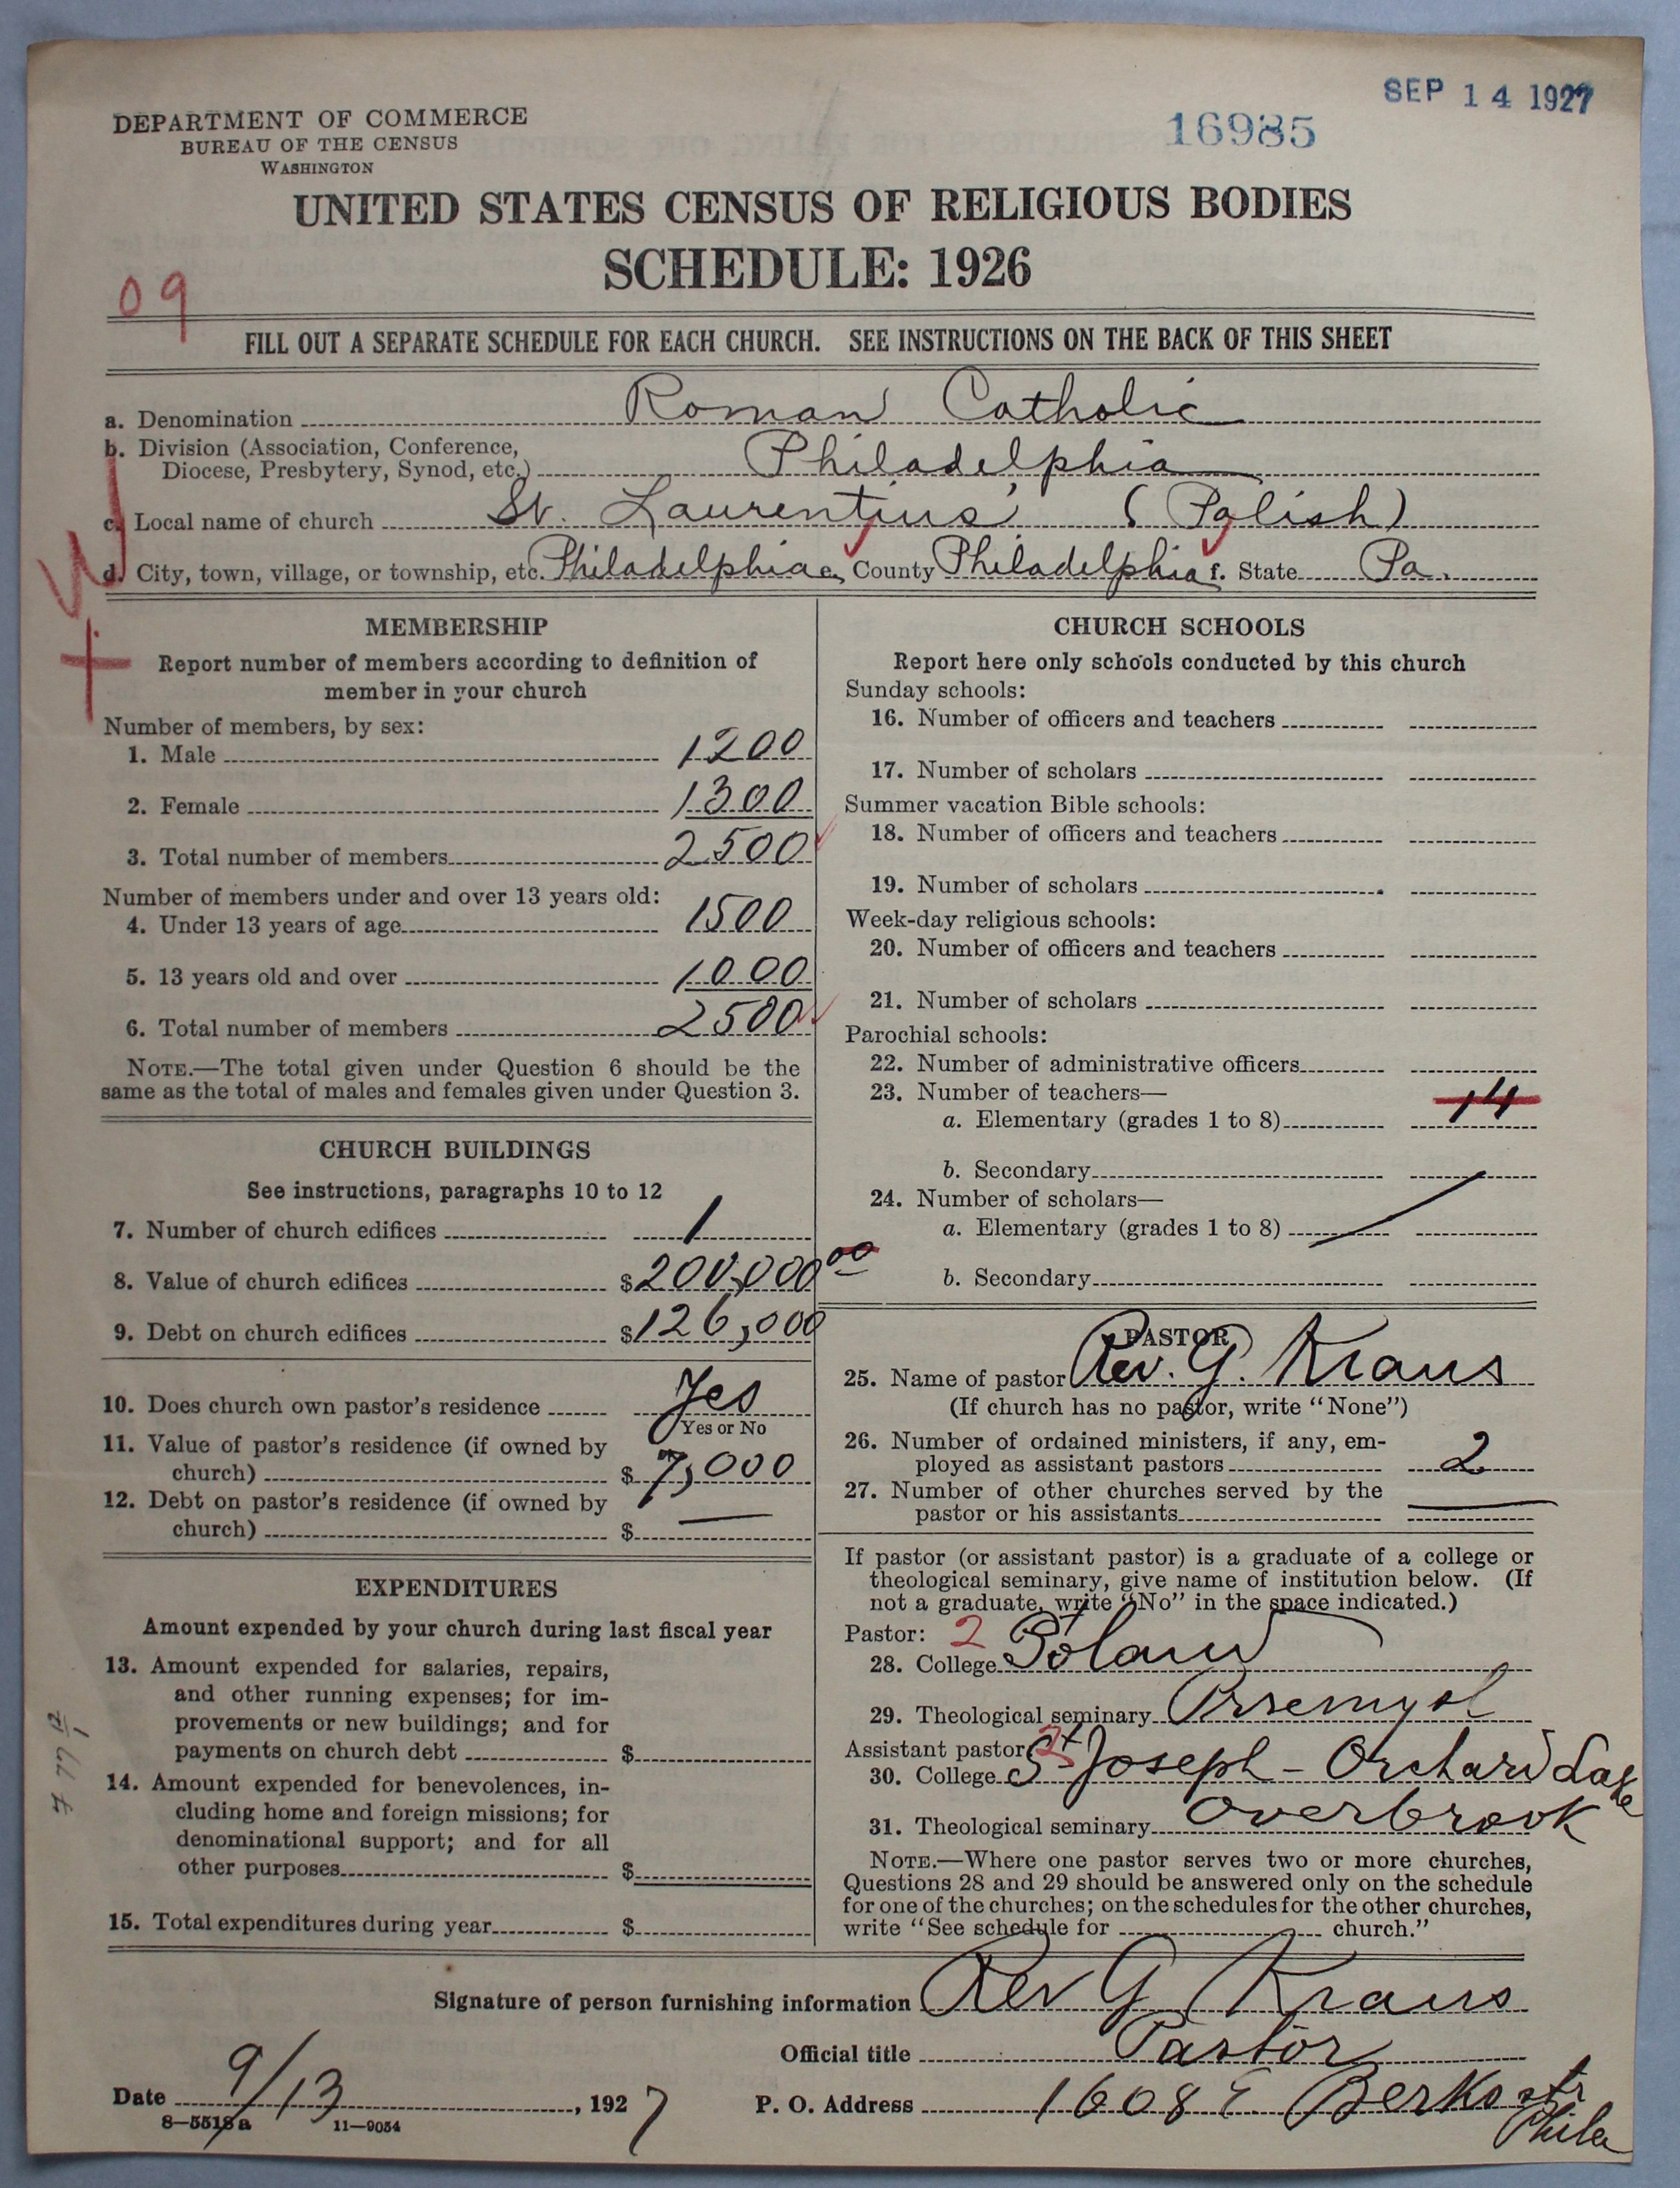 SEP 14 1927
16985
DEPARTMENT OF COMMERCE
BUREAU OF THE CENSUS
WASHINGTON
UNITED STATES CENSUS OF RELIGIOUS BODIES
SCHEDULE: 1926
09
FILL OUT A SEPARATE SCHEDULE FOR EACH CHURCH. SEE INSTRUCTIONS ON THE BACK OF THIS SHEET
a. Denomination Roman Catholic
b. Division (Association, Conference,
Diocese, Presbytery, Synod, etc.) Philadelphia
c. Local name of church St. Laurentius' (Polish)
d. City, town, village, or township, etc. Philadelphia e. County Philadelphia f. State Pa.
MEMBERSHIP
Report number of members according to definition of
member in your church
Number of members, by sex:
1. Male 1200
2. Female 1300
3. Total number of members 2500
Number of members under and over 13 years old:
4. Under 13 years of age 1500
5. 13 years old and over 1000
6. Total number of members 2500
NOTE.—The total given under Question 6 should be the
same as the total of males and females given under Question 3.
CHURCH BUILDINGS
See instructions, paragraphs 10 to 12
7. Number of church edifices 1
8. Value of church edifices $200,000 00
9. Debt on church edifices $126,000
10. Does church own pastor's residence Yes
Yes or No
11. Value of pastor's residence (if owned by
church) $7,000
12. Debt on pastor's residence (if owned by
church) $ —
EXPENDITURES
Amount expended by your church during last fiscal year
13. Amount expended for salaries, repairs,
and other running expenses; for im-
provements or new buildings; and for
payments on church debt $
14. Amount expended for benevolences, in-
cluding home and foreign missions; for
denominational support; and for all
other purposes $
15. Total expenditures during year $
CHURCH SCHOOLS
Report here only schools conducted by this church
Sunday schools:
16. Number of officers and teachers
17. Number of scholars
Summer vacation Bible schools:
18. Number of officers and teachers
19. Number of scholars
Week-day religious schools:
20. Number of officers and teachers
21. Number of scholars
Parochial schools:
22. Number of administrative officers
23. Number of teachers—
a. Elementary (grades 1 to 8) 14
b. Secondary
24. Number of scholars—
a. Elementary (grades 1 to 8)
b. Secondary
PASTOR
25. Name of pastor Rev. G. Kraus
(If church has no pastor, write "None")
26. Number of ordained ministers, if any, em-
ployed as assistant pastors 2
27. Number of other churches served by the
pastor or his assistants —
If pastor (or assistant pastor) is a graduate of a college or
theological seminary, give name of institution below. (If
not a graduate, write "No" in the space indicated.)
Pastor: 2
28. College Poland
29. Theological seminary Przemysl
Assistant pastor:
30. College St Joseph - Orchard Lake
31. Theological seminary Overbrook
NOTE.—Where one pastor serves two or more churches,
Questions 28 and 29 should be answered only on the schedule
for one of the churches; on the schedules for the other churches,
write "See schedule for church."
Signature of person furnishing information Rev G Kraus
Official title Pastor
Date 9/13, 1927
P. O. Address 1608 E Berks str
Phila
8—5518a 11—9054